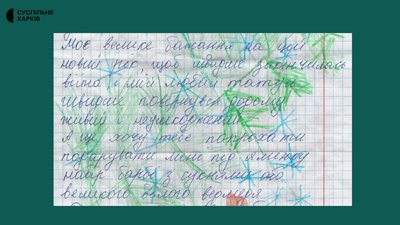 СУСПІЛЬНЕ
ХАРКІВ
Моє велике бажання на цей
новий рік, щоб швидше закінчилась
війна і мій любий татусь
швидше повернувся додому
живий і неушкоджений
А ще хочу тебе попрохати
подарувати мені під ялинку
набір барбі з
великого білого ведмедя